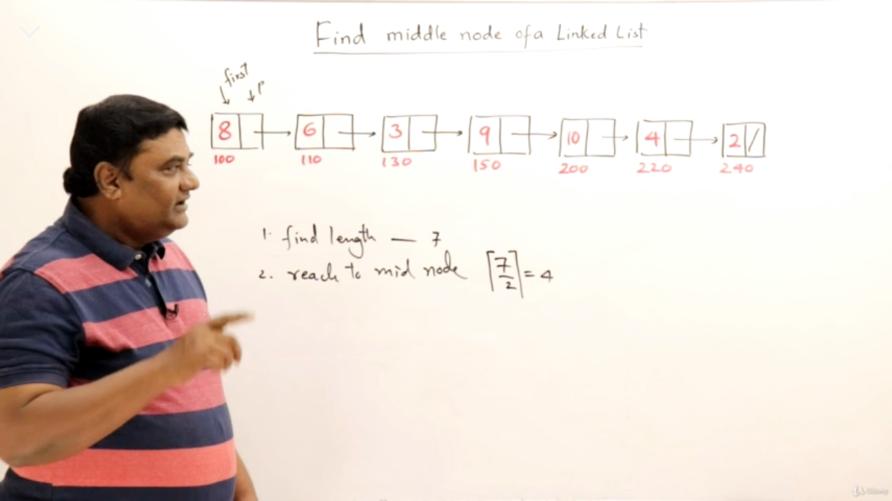 Find middle node of a Linked List
first p
8 6 3 9 10 4 2 /
100 110 130 150 200 220 240
1. find length — 7
2. reach to mid node ⌈7/2⌉ = 4